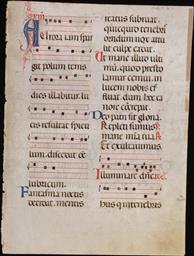 Aurora iam spar
git polum terris
dies illabitur lu
cis resultat spicu
lum discedat om
ne
lubricum.
Fantasma noctis
decidat mentis
reatus subruat
quicquid tenebris
horridum nox attu
lit culpe cadat.
Ut mane illud ulti
mum quod presto
lamur cernui in
lucem nobis ef
fluat dum hoc ca
nore concrepat.
Deo patri sit gloria.
Repleti sumus
mane mia tua
Et exultavimus
Illuminare
hus qui in tenebris